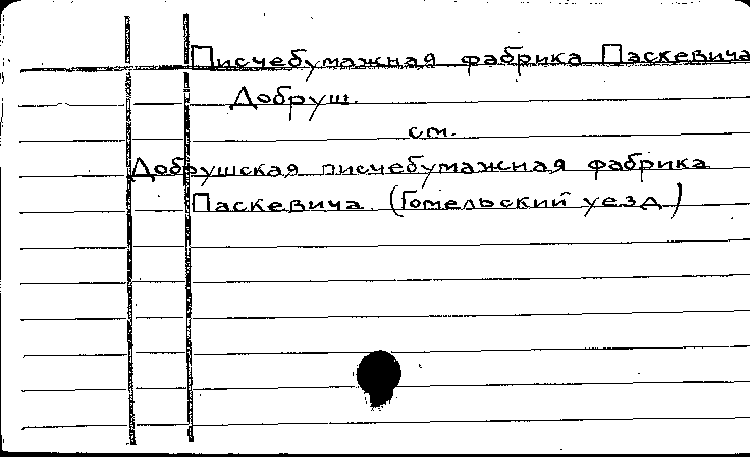 Писчебумажная фабрика Паскевича
Добруш.
см.
Добрушская писчебумажная фабрика
Паскевича. (Гомельский уезд)